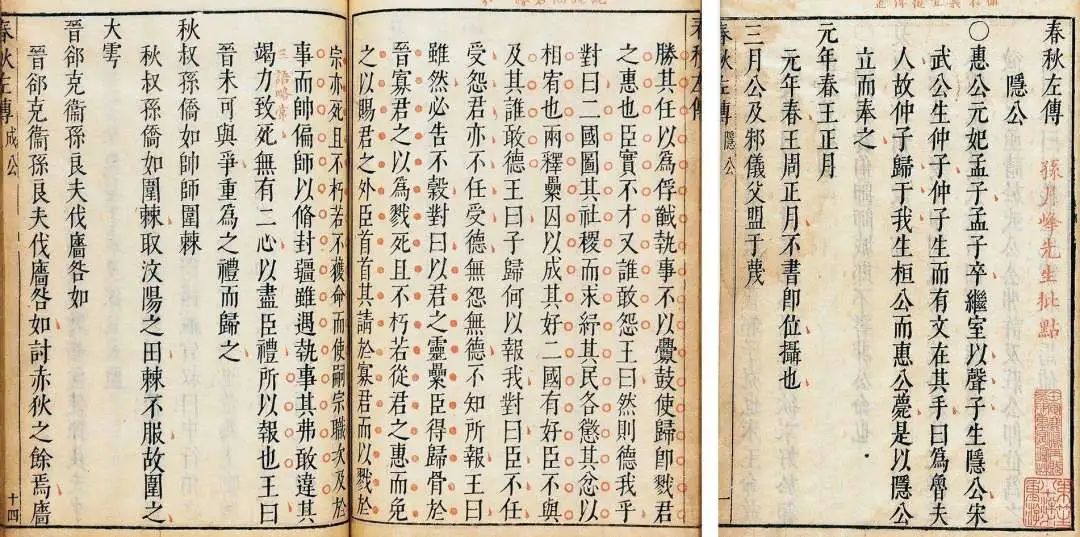 春秋左傳
孫月峯先生批點
隱公
○惠公元妃孟子孟子卒繼室以聲子生隱公宋
武公生仲子仲子生而有文在其手曰為魯夫
人故仲子歸于我生桓公而惠公薨是以隱公
立而奉之
元年春王正月
元年春王周正月不書即位攝也
三月公及邾儀父盟于蔑
春秋左傳 隱公 一
春秋左傳
勝其任以為俘馘執事不以釁鼓使歸即戮君
之惠也臣實不才又誰敢怨王曰然則德我乎
對曰二國圖其社稷而求紓其民各懲其忿以
相宥也兩釋纍囚以成其好二國有好臣不與
及其誰敢德王曰子歸何以報我對曰臣不任
受怨君亦不任受德無怨無德不知所報王曰
雖然必告不穀對曰以君之靈纍臣得歸骨於
晉寡君之以為戮死且不朽若從君之惠而免
之以賜君之外臣首首其請於寡君而以戮於
宗亦死且不朽若不獲命而使嗣宗職次及於
事而帥偏師以脩封疆雖遇執事其弗敢違其
竭力致死無有二心以盡臣禮所以報也王曰
晉未可與爭重為之禮而歸之
秋叔孫僑如帥師圍棘
秋叔孫僑如圍棘取汶陽之田棘不服故圍之
大雩
晉郤克衞孫良夫伐廧咎如
晉郤克衞孫良夫伐廧咎如討赤狄之餘焉廧
春秋左傳 成公 十四